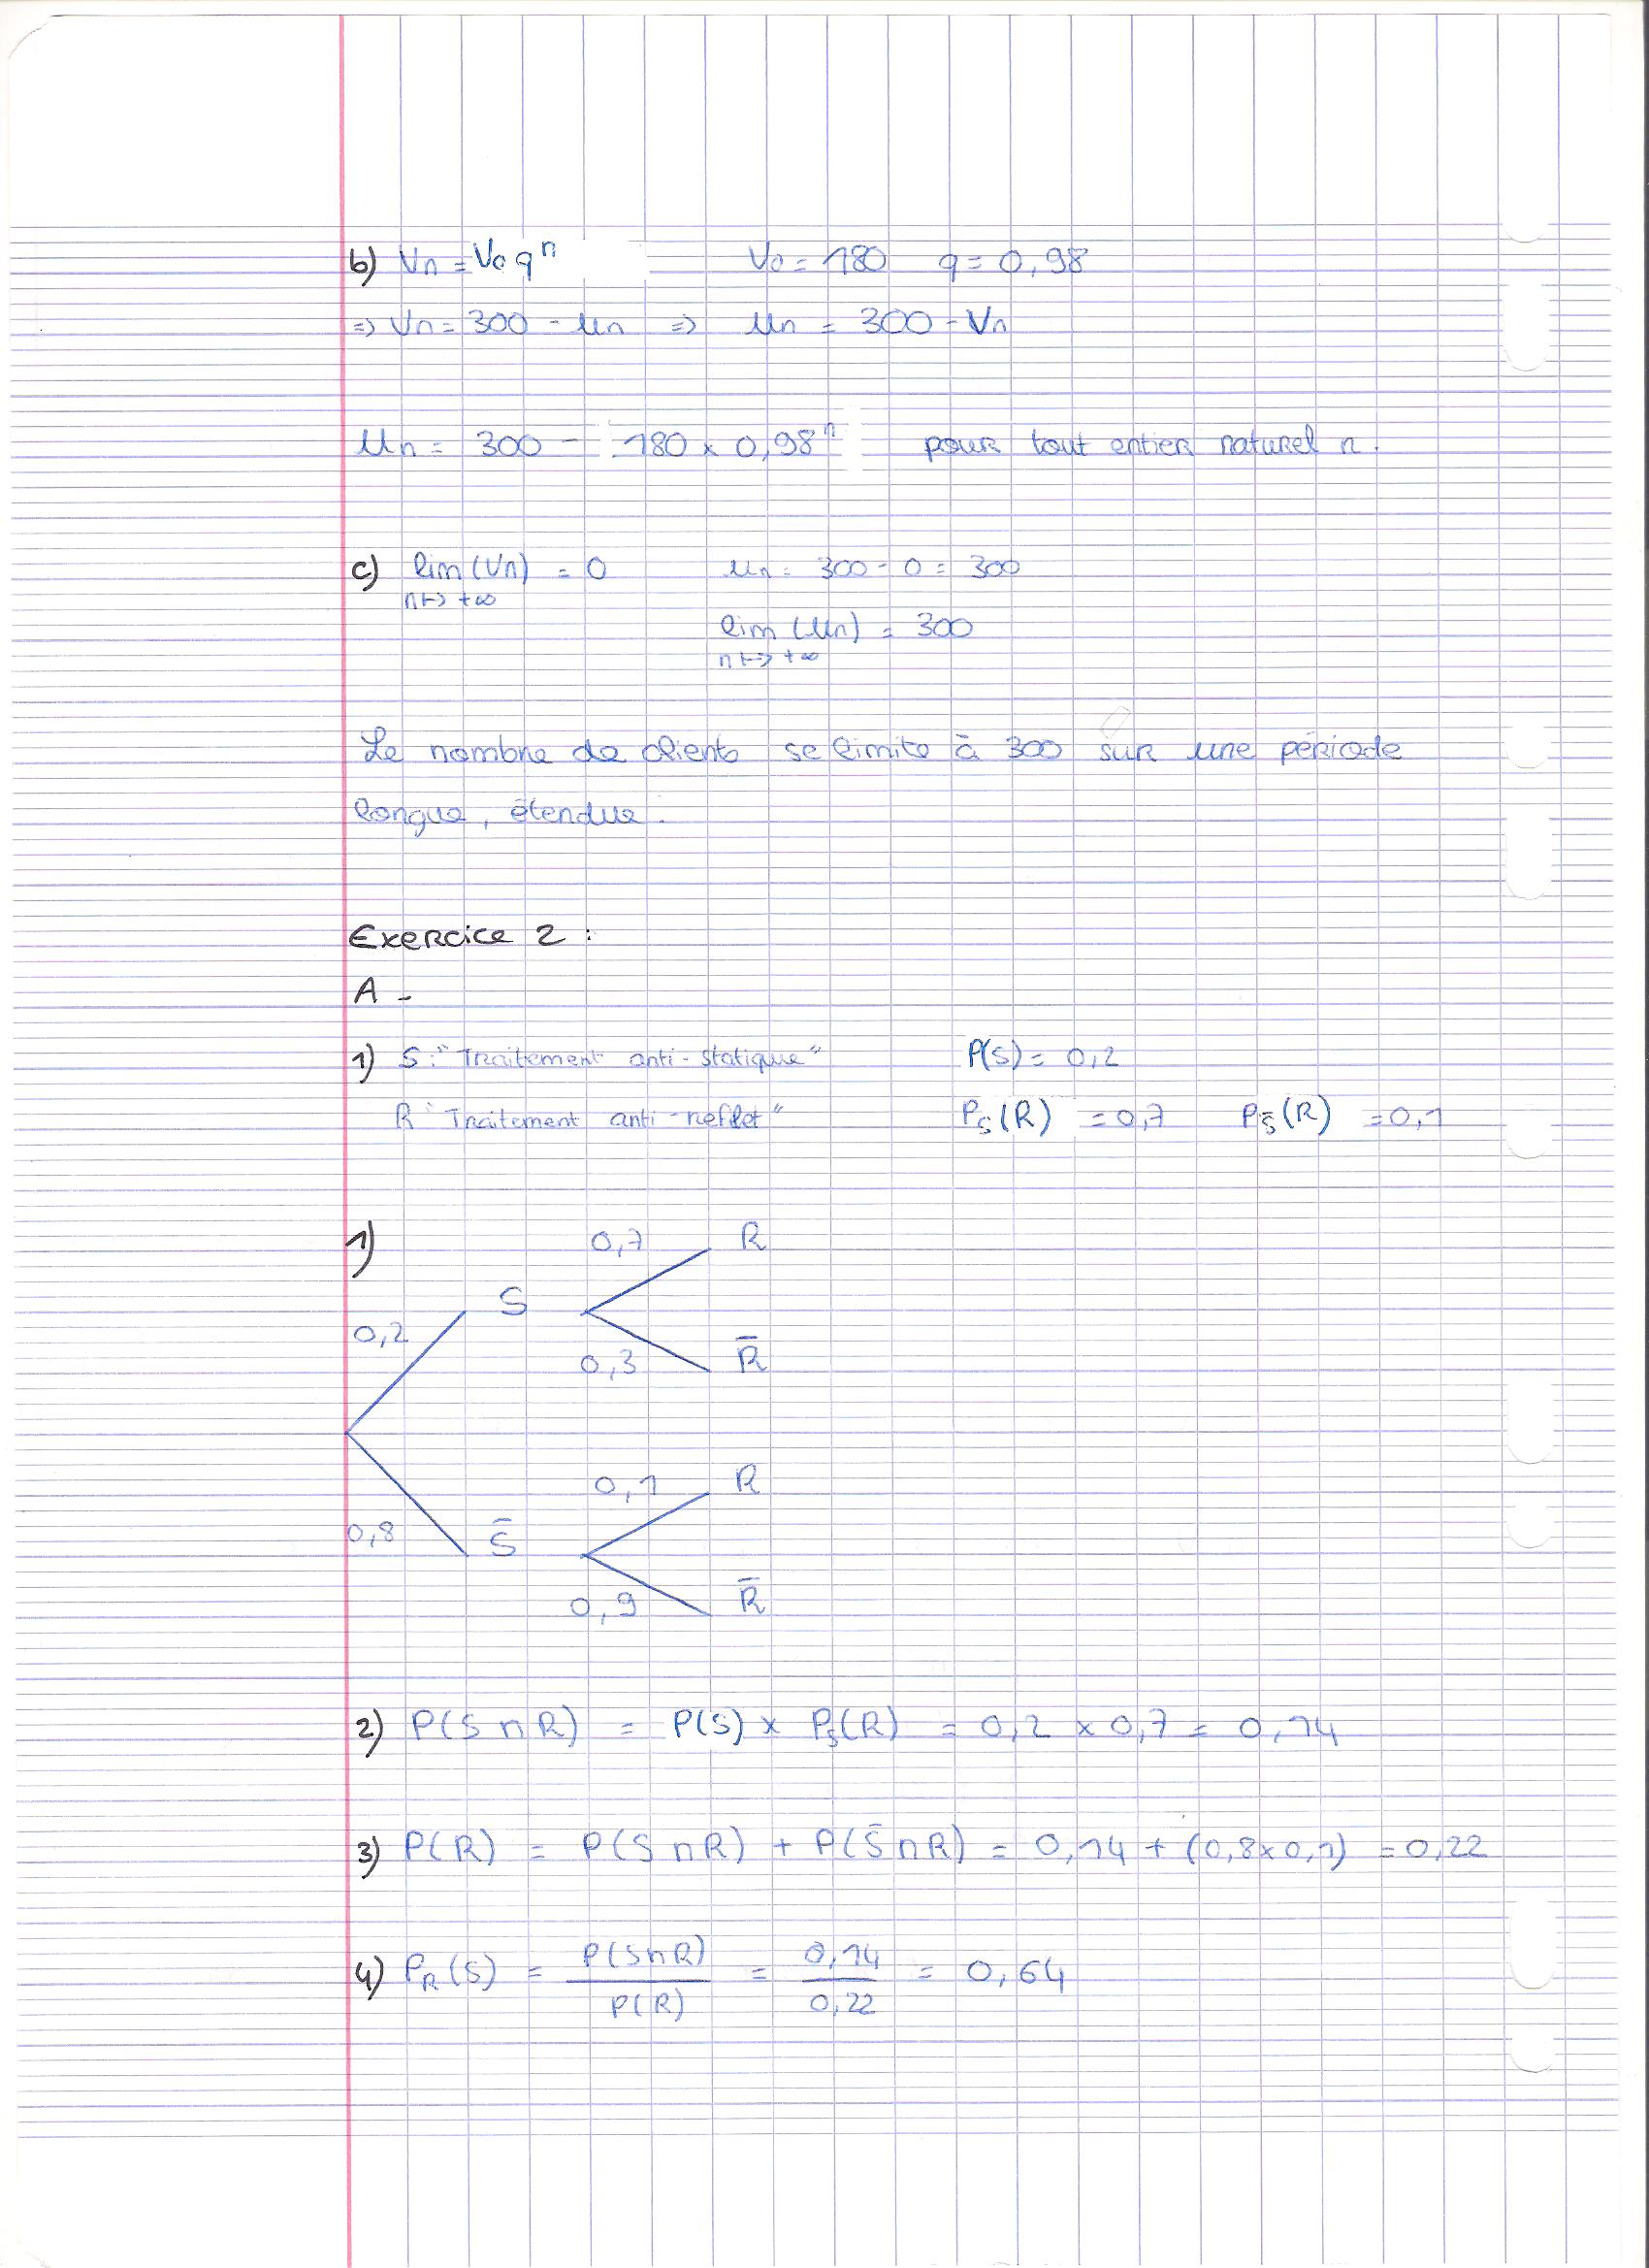 b) Vn = V0 q^n V0 = 180 q = 0,98
=> Vn = 300 - Un => Un = 300 - Vn
Un = 300 - 180 x 0,98^n pour tout entier naturel n.
c) lim (Vn) = 0 Un = 300 - 0 = 300
n↦ +∞
lim (Un) = 300
n↦ +∞
Le nombre de clients se limite à 300 sur une période
longue, étendue.
Exercice 2 :
A -
1) S : "Traitement anti-statique" P(S) = 0,2
R "Traitement anti-reflet" PS(R) = 0,7 PS̄(R) = 0,1
1)
0,7 R
S
0,2
0,3 R̄
0,1 R
0,8 S̄
0,9 R̄
2) P(S ∩ R) = P(S) x PS(R) = 0,2 x 0,7 = 0,14
3) P(R) = P(S ∩ R) + P(S̄ ∩ R) = 0,14 + (0,8 x 0,1) = 0,22
4) PR(S) = P(S∩R) / P(R) = 0,14 / 0,22 = 0,64